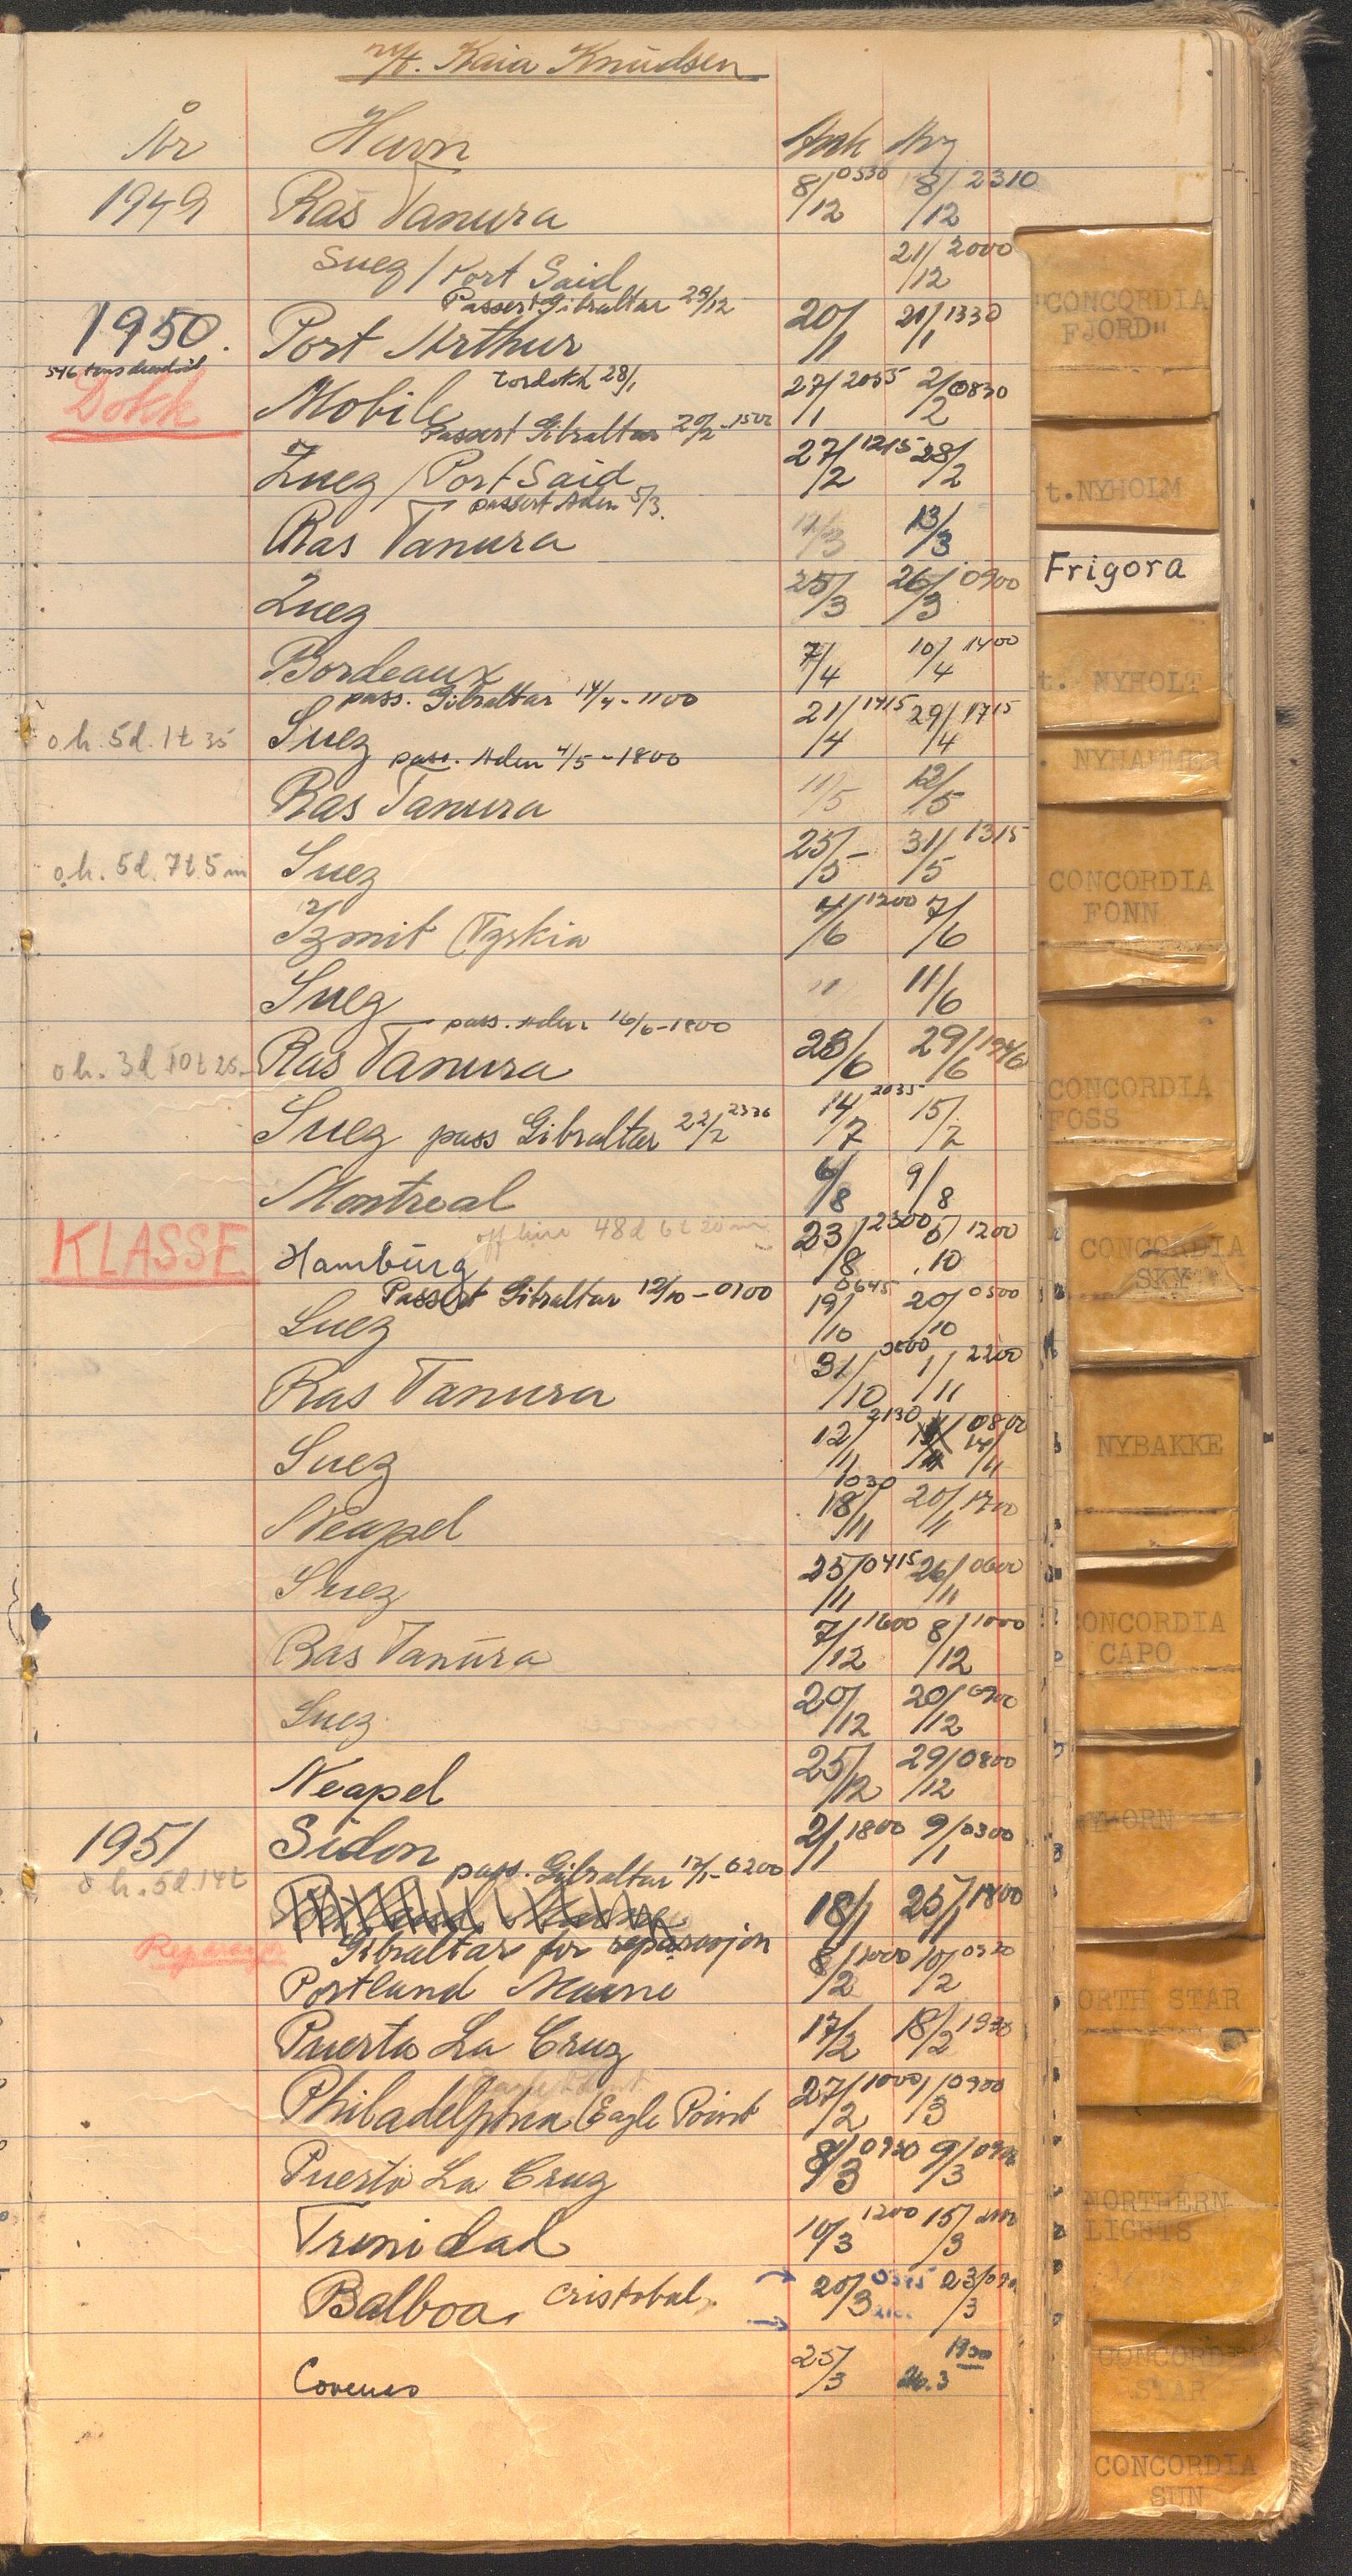 M/t. Kaia Knudsen
År Havn Ank Avg
1949 Ras Tanura 8/12 0530 8/12 2310
Suez / Port Said 21/12 2000
Passert Gibraltar 29/12
1950. Port Arthur 20/1 21/1 1330
546 tons
Dokk Mobile tordokk 28/1 27/1 2055 2/2 0830
Passert Gibraltar 20/2 - 1500
Zuez / Port Said 27/2 1215 28/2
passert Aden 5/3.
Ras Tanura 12/3 13/3
Zuez 25/3 26/3 0900
Bordeaux 7/4 10/4 1400
pass. Gibraltar 14/4 - 1100
o.h. 5d. 1t 35 Suez 21/4 1415 29/4 1715
pass. Aden 4/5 - 1800
Ras Tanura 11/5 12/5
o.h. 5d. 7t. 5m Suez 25/5 - 31/5 1315
Izmit (Tyrkia 4/6 1200 7/6
Suez 11/6
pass. Aden 16/6 - 1800
o.h. 3d 10t 25 Ras Tanura 28/6 29/6
Suez pass Gibraltar 22/7 2336 14/7 2035 15/7
Montreal 6/8 9/8
KLASSE Hamburg off hire 48d 6t 20m 23/8 2300 5/10 1200
Passert Gibraltar 12/10 - 0100
Suez 19/10 0645 20/10 0500
Ras Tanura 31/10 1/11 2200
Suez 12/11 2130 14/11 0800
Neapel 18/11 1030 20/11 1700
Suez 25/11 0415 26/11 0600
Ras Tanura 7/12 1600 8/12 1000
Suez 20/12 20/12 0900
Neapel 25/12 29/12 0800
1951 Sidon 2/1 1800 9/1 0300
o h. 5d. 14t pass. Gibraltar 17/1 - 0200
18/1 25/1 1800
Reparasjon Gibraltar for reparasjon
Portland Maine 8/2 1000 10/2 0320
Puerto La Cruz 17/2 18/2 1930
Philadelphia (Eagle Point 27/2 1000 1/3 0900
Puerto La Cruz 8/3 0930 9/3
Trinidad 10/3 1200 15/3
Balboa, Cristobal. 20/3 23/3
Covenas 25/3 26.3 1900
"CONCORDIA
FJORD"
t. NYHOLM
Frigora
t. NYHOLT
NYHAMMER
CONCORDIA
FONN
CONCORDIA
FOSS
CONCORDIA
SKY
NYBAKKE
CONCORDIA
CAPO
ORN
ORTH STAR
NORTHERN
LIGHTS
CONCORDIA
STAR
CONCORDIA
SUN